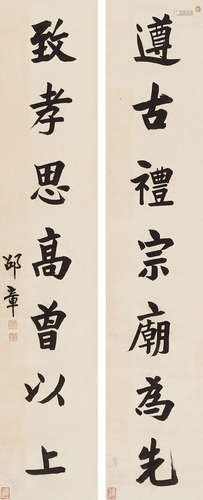 遵古禮宗廟為先
致孝思高曾以上
邵章